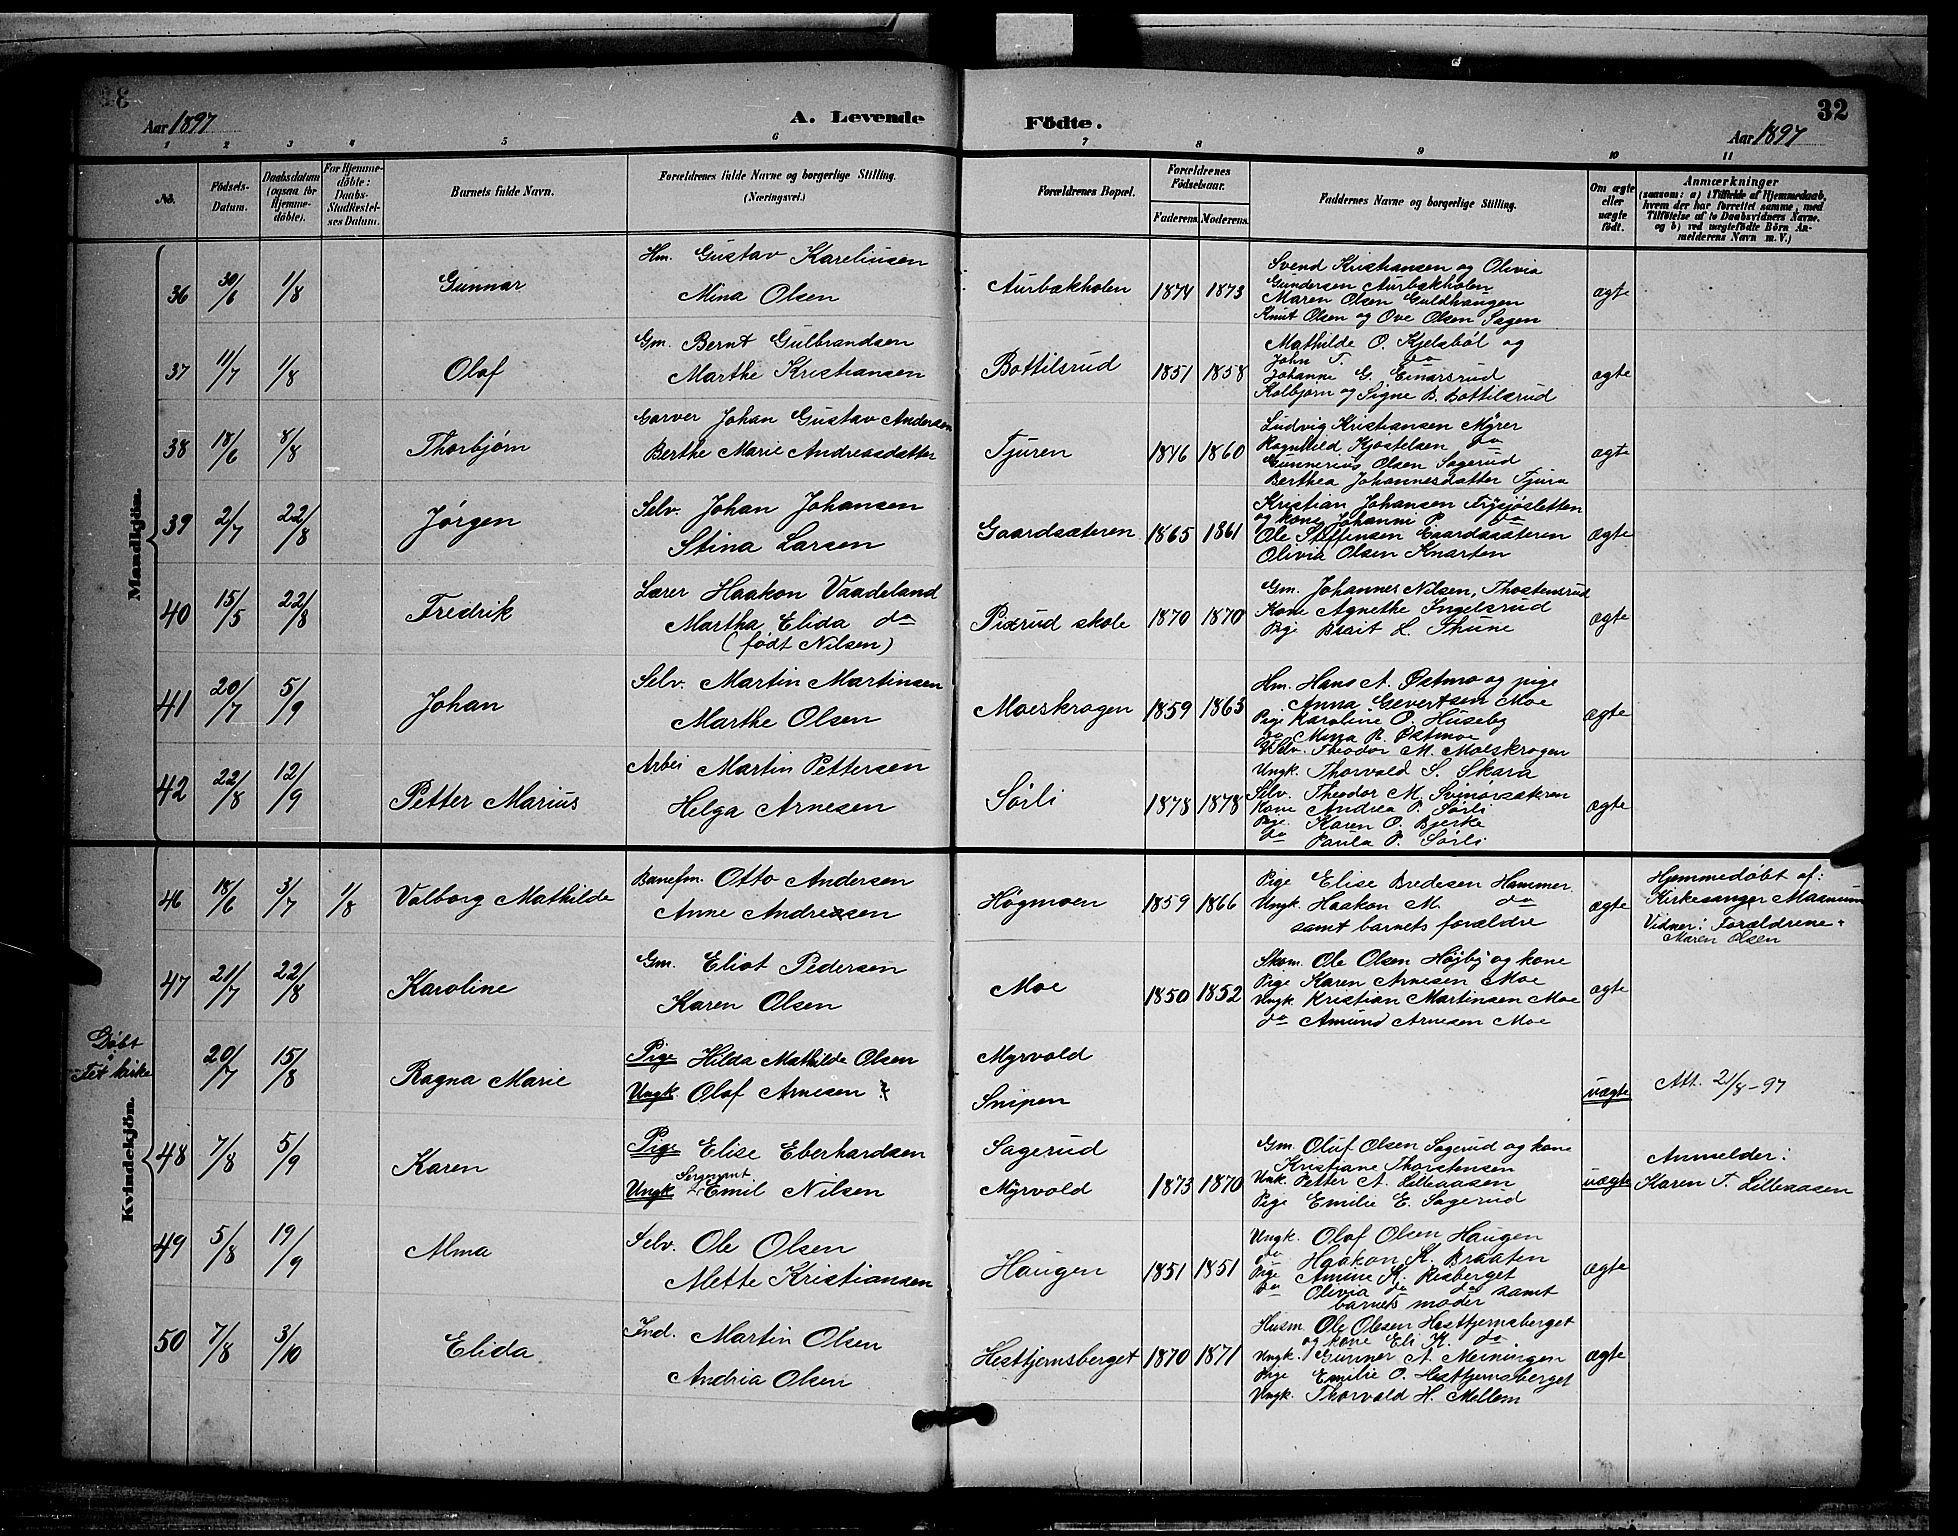 Aar 1897
A. Levende
Födte.
32
Aar 1897
1 2 3 4 5 6 7 8 9 10 11
No.
Födsels-
Datum.
Daabsdatum
(ogsaa for
Hjemme-
døbte).
For Hjemme-
døbte:
Daabs-
Stadfæstel-
ses Datum.
Barnets fulde Navn.
Forældrenes fulde Navne og borgerlige Stilling.
(Næringsvei.)
Forældrenes Bopæl.
Forældrenes
Födselsaar.
Faderens. Moderens.
Faddernes Navne og borgerlige Stilling.
Om ægte
eller
uægte
født.
Anmærkninger
(saasom: a) i Tilfælde af Hjemmedaab,
hvem der har forrettet samme, med
Tilføielse af to Daabsvidners Navne.
og b) ved uægtefødte Børn An-
melderens Navn m. V.)
Mandkjön.
36 30/6 1/8 Gunnar
Hm. Gustav Kareliusen
Mina Olsen
Aurbækholen 1874 1873
Svend Kristiansen og Olivia
Gundersen Aurbækholen
Maren Olsen Guldhaugen
Knut Olsen og Ove Olsen Sagen
ægte
37 11/7 1/8 Olaf
Gm. Bernt Gulbrandsen
Marthe Kristiansen
Bottilsrud 1851 1858
Mathilde O. Kjelsböl og
John T. do
Johanne G. Einarsrud
Kolbjørn og Signe B. Bottilsrud
ægte
38 18/6 8/8 Thorbjørn
Garver Johan Gustav Andersen
Berthe Marie Andreasdatter
Tjuren 1846 1860
Ludvig Kristiansen Myrer
Ragnhild Kjøstelsen do
Gunnerius Olsen Sagerud
Berthea Johannesdatter Tjura
ægte
39 2/7 22/8 Jørgen
Selv. Johan Johansen
Stina Larsen
Gaardsæteren 1865 1861
Kristian Johansen Frysjøsletten
og kone Johanne P. do
Ole Steffensen Gaardsæteren
Olivia Olsen Knarten
ægte
40 15/5 22/8 Fredrik
Lærer Haakon Vaadeland
Martha Elida do
(født Nilsen)
Pixrud skole 1870 1870
Gm. Johannes Nilsen, Thostensrud
Kone Agnethe Ingelsrud
Pige Brait L. Thune
ægte
41 20/7 5/9 Johan
Selv. Martin Martinsen
Marthe Olsen
Moeskrogen 1859 1863
Hm. Hans A. Østmo og pige
Anna Gevertsen Moe
Pige Karoline O. Huseby
do Mina R. Østmoe
Selv. Theodor M. Moeskrogen
ægte
42 22/8 12/9 Petter Marius
Arbei Martin Pettersen
Helga Arnesen
Sørli 1878 1878
Ungk. Thorvald S. Skara
Selv. Theodor M. Svinorsæteren
Kone Andrea P. Sørli
Pige Karen O. Bjerke
do Paula P. Sørli
ægte
Kvindekjön.
46 18/6 3/7 1/8 Valborg Mathilde
Banefm. Otto Andersen
Anne Andreasen
Högmoen 1859 1866
Pige Elise Bredesen Hammer
Ungk. Haakon M. do
samt barnets forældre
ægte
Hjemmedøbt af:
Kirkesanger Masmun
Vidner: Forældrene +
Maren Olsen
47 21/7 22/8 Karoline
Gm. Eliot Pedersen
Karen Olsen
Moe 1850 1852
Skom. Ole Olsen Højby og kone
Pige Karen Arnesen Moe
Ungk Kristian Martinsen Moe
do Amund Arnesen Moe
ægte
Døbt
i
Fet kirke
20/7 15/8 Ragna Marie
Pige Hilda Mathilde Olsen
Ungk. Olaf Arnesen
Myrvold
Snipen
uægte
Att. 21/8-97
48 7/8 5/9 Karen
Pige Elise Eberhardsen
Sergeant
Ungk Emil Nilsen
Sagerud
Myrvold 1873 1870
Gm Oluf Olsen Sagerud og kone
Kristiane Thorstensen
Unk Petter A. Lilleaasen
Pige Emilie E. Sagerud
uægte
Anmelder:
Karen T. Lilleaasen
49 5/8 19/9 Alma
Selv. Ole Olsen
Mette Kristiansen
Haugen 1851 1851
Ungk. Olaf Olsen Haugen
do Haakon K. Braaten
Pige Amine K. Risberget
do Olivia do do samt
barnets moder
ægte
50 7/8 3/10 Elida
Ind. Martin Olsen
Andria Olsen
Hesttjernsberget 1870 1871
Husm. Ole Olesen Hesttjernsberget
og kone Eli K. do
Ungk. Gunner A. Meiningen
Pige Emilie O. Hesttjernsberget
Ungk. Thorvald H. Mellem
ægte